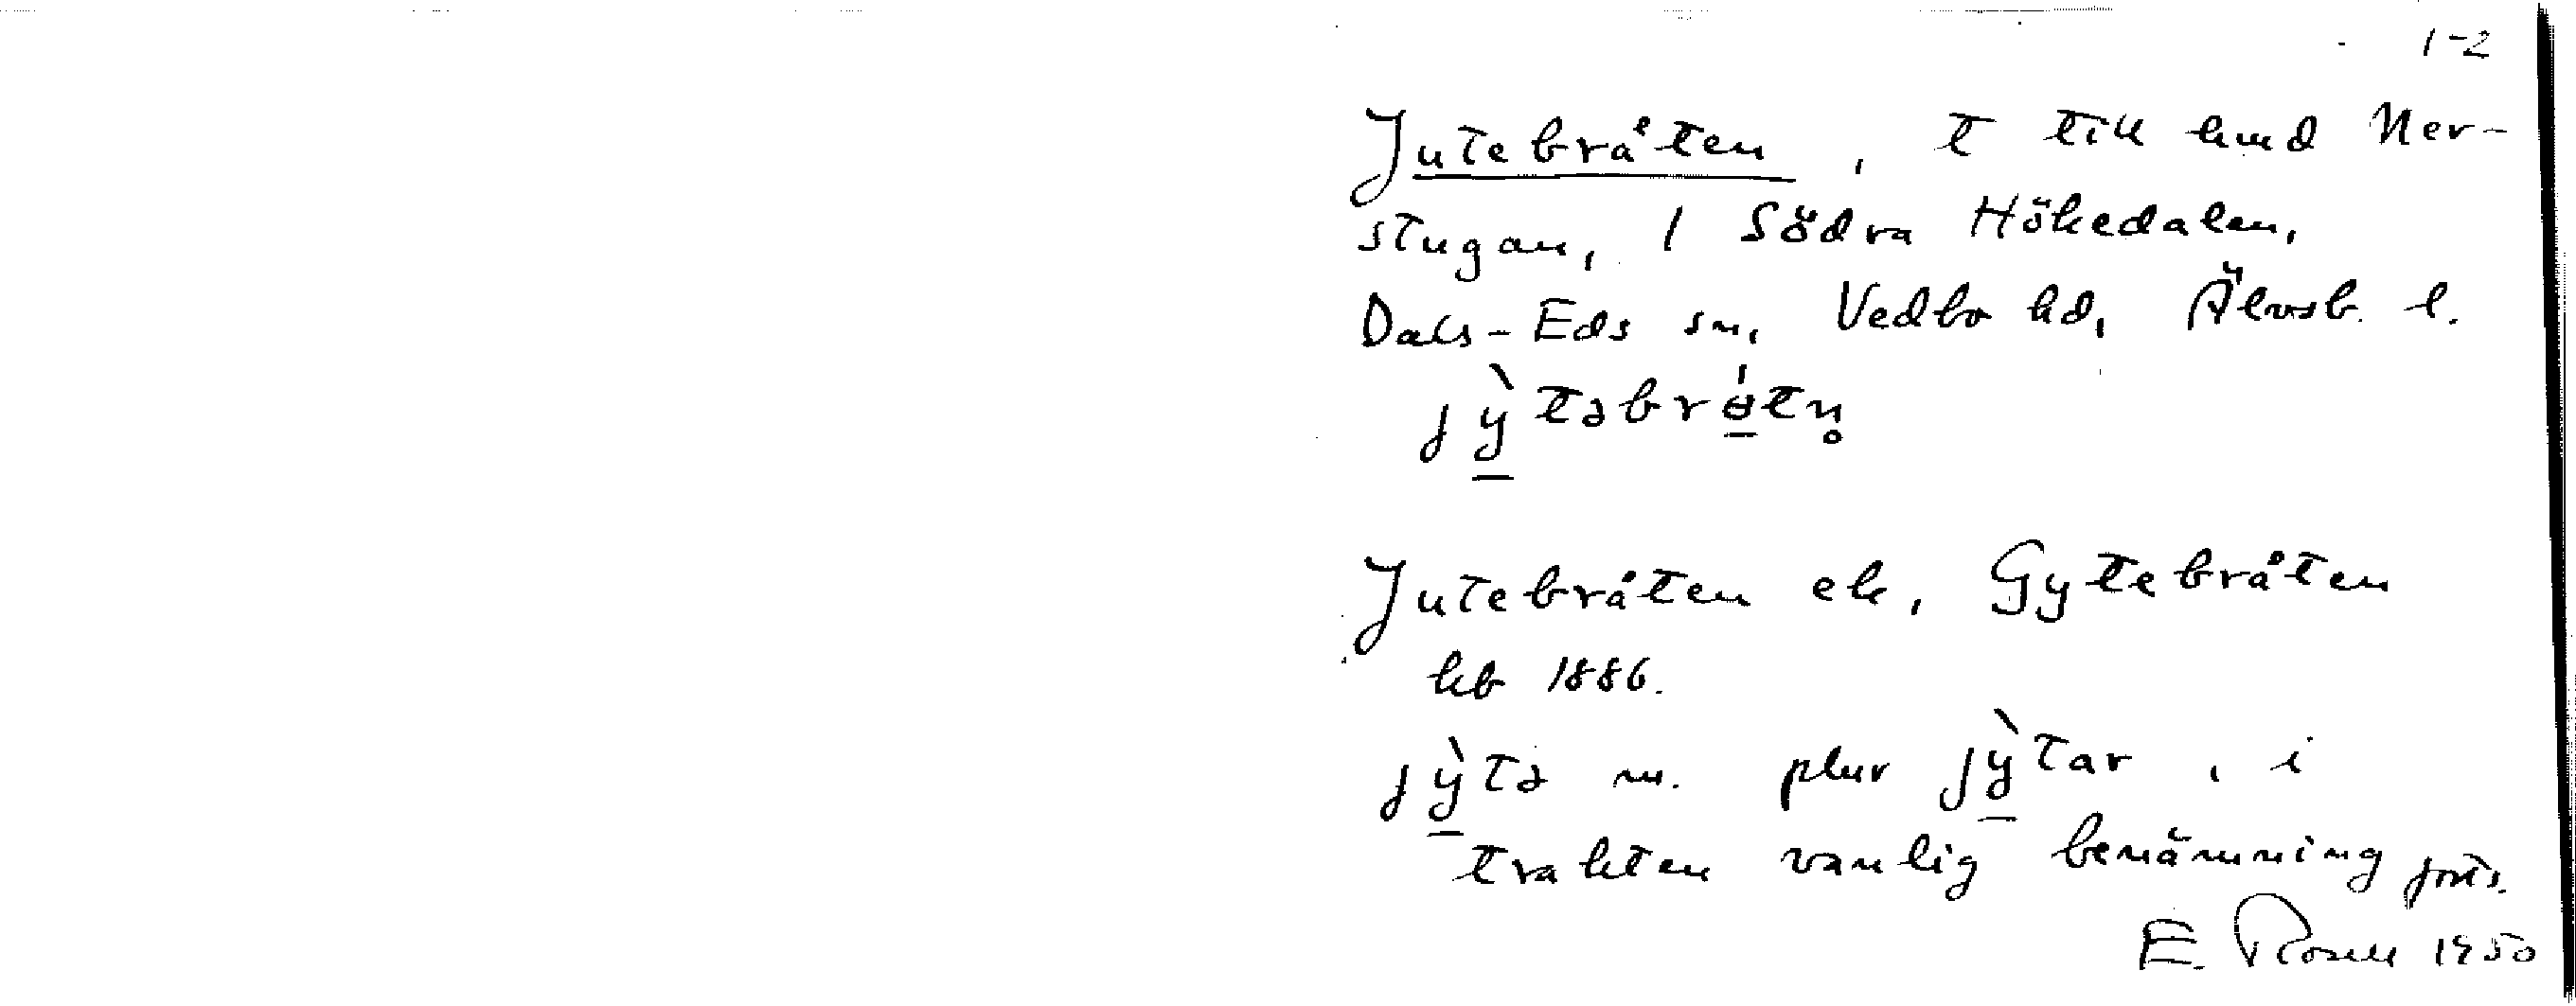 1-2
Jutebråten, t till hmd Ner-
stugan, 1 Södra Hökedalen,
Dals-Eds sn, Vedbo hd, Älvsb. l.
jỳ̱təbrɵ̱́tn̥
Jutebråten el, Gytebråten
hb 1886.
jỳ̱tə m. plur jỳ̱tar, i
trakten vanlig benämning forts.
E. Rosell 1950